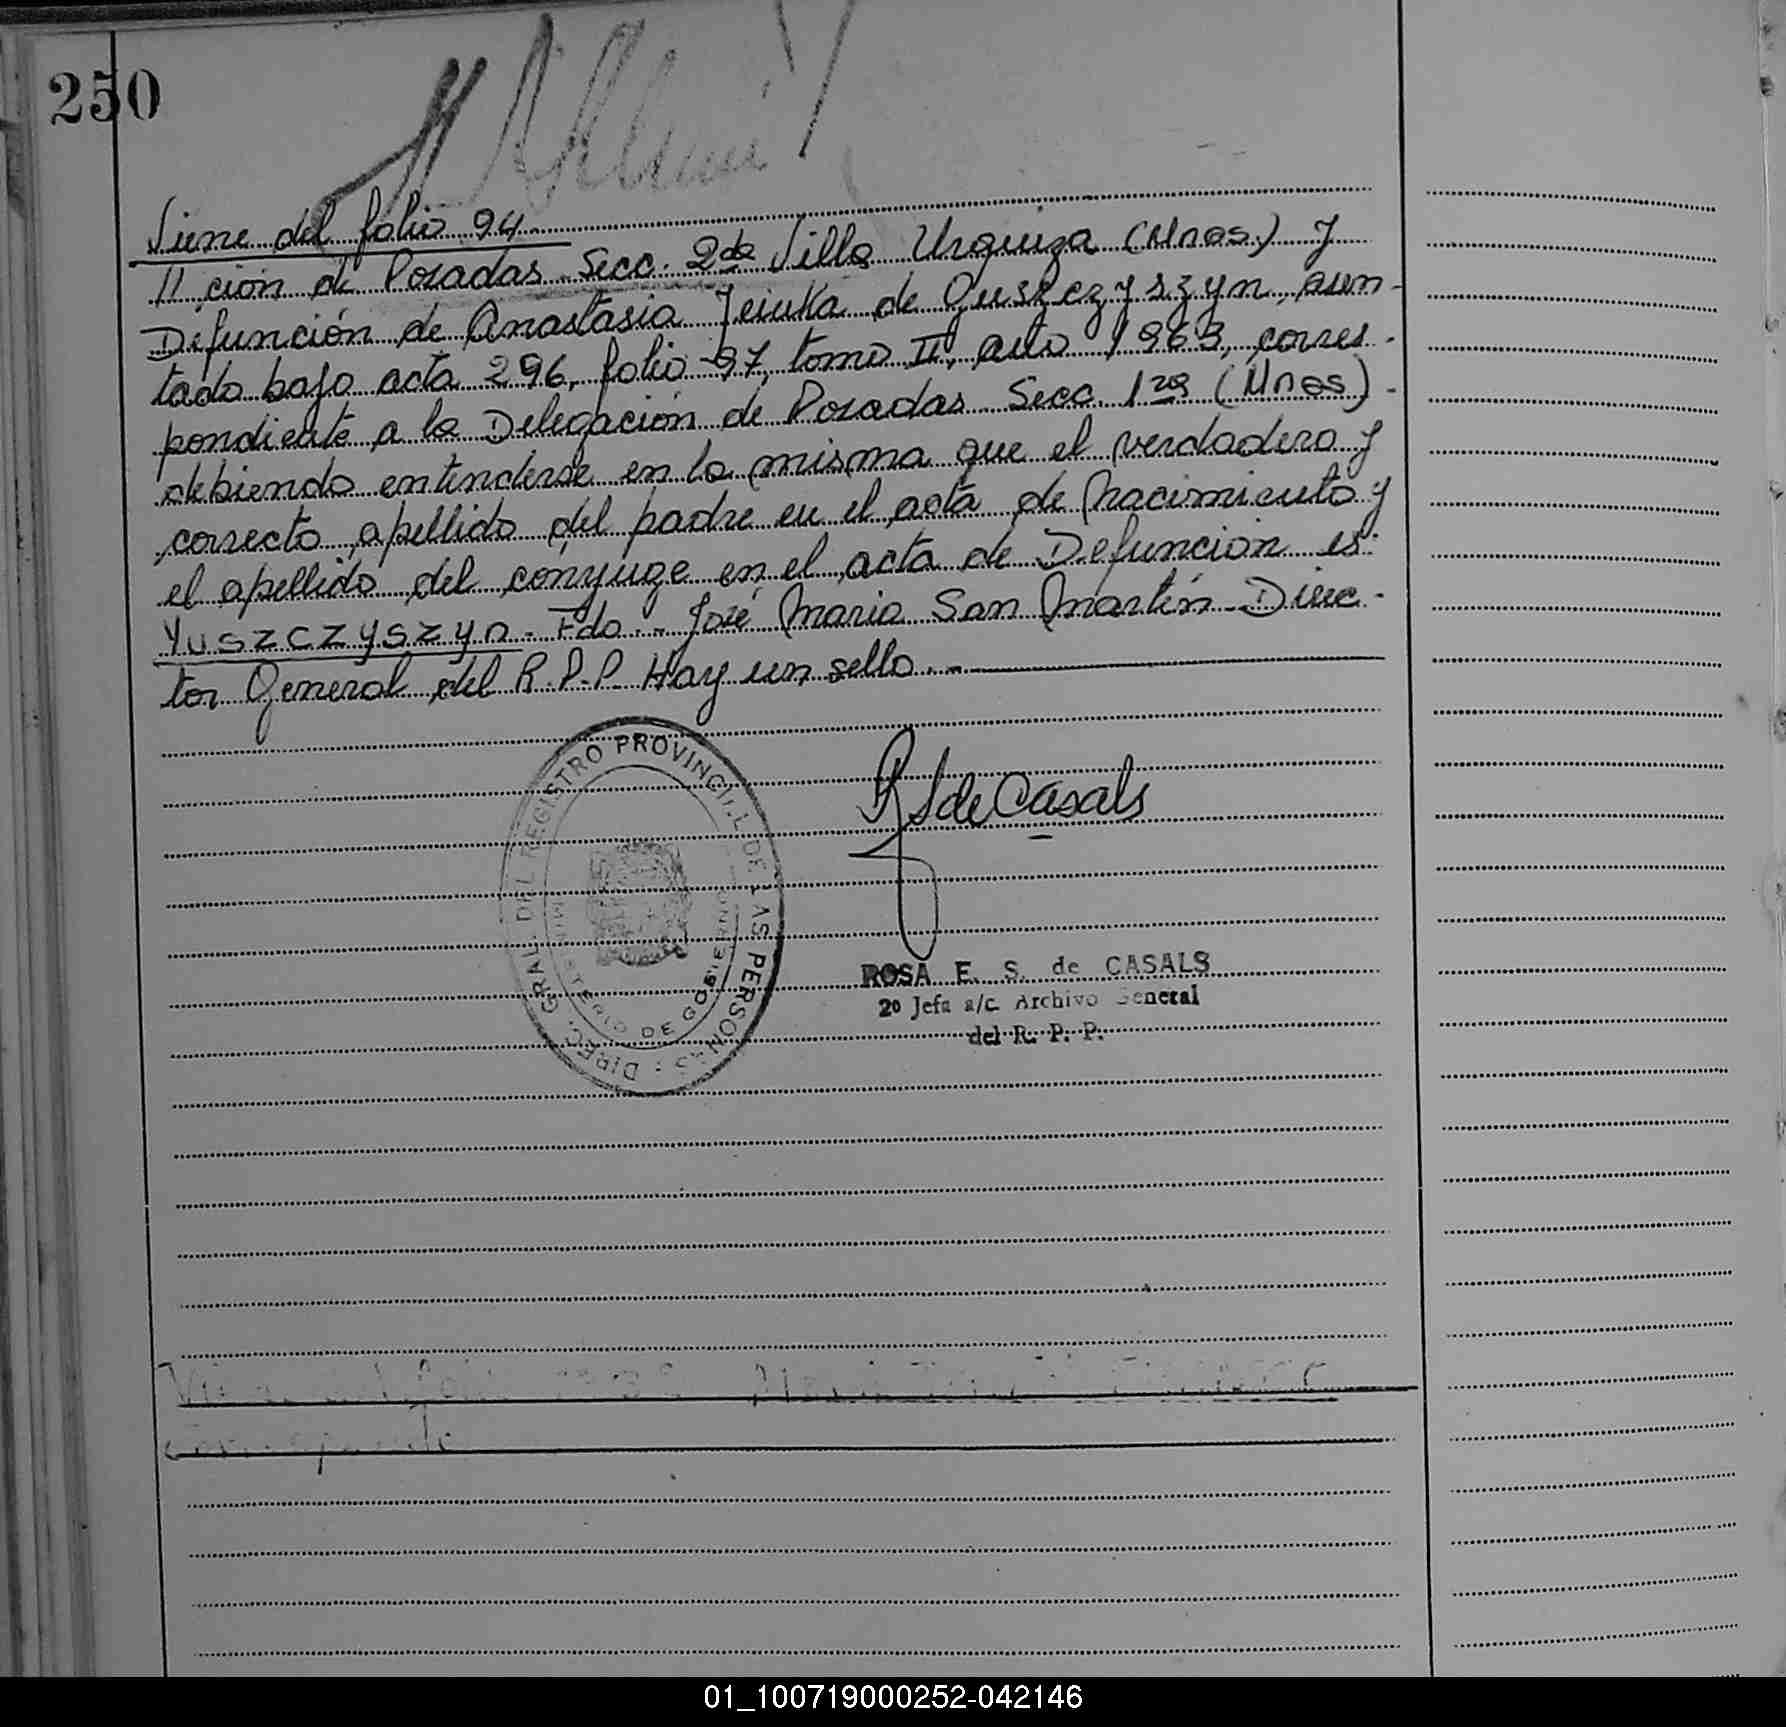 250
Viene del folio 94
// ción de Posadas Secc. 2da Villa Urquiza (Mnes.) y
Defunción de Anastasia de asen-
tado bajo acta 296, folio 97, tomo II, año 1963, corres-
pondiente a la Delegación de Posadas Secc. 1ra (Mnes) -
debiendo entenderse en la misma que el verdadero y
correcto apellido del padre en el acta de Nacimiento y
el apellido del cónyuge en el acta de Defunción es:
Yuszczyszyn - Fdo. - José Maria San Martín - Direc-
tor General del R.P.P. Hay un sello. -
DIREC. GRAL. DEL REGISTRO PROVINCIAL DE LAS PERSONAS
MINISTERIO DE GOBIERNO
R S de Casals
ROSA E. S. de CASALS
2º Jefa a/c. Archivo General
del R. P. P.
01_100719000252-042146